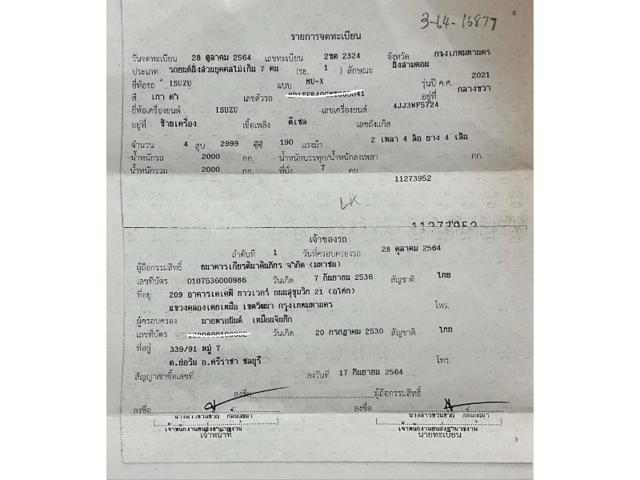 3-64-16877
4
รายการจดทะเบียน
วันจดทะเบียน 28 ตุลาคม 2564 เลขทะเบียน 2ขด 2324 จังหวัด กรุงเทพมหานคร
ประเภท รถยนต์นั่งส่วนบุคคลไม่เกิน 7 คน (รย. 1) ลักษณะ นั่งสามตอน
ยี่ห้อรถ ISUZU แบบ MU-X รุ่นปี ค.ศ. 2021
สี เทา ดำ เลขตัวรถ อยู่ที่ กลางขวา
ยี่ห้อเครื่องยนต์ ISUZU เลขเครื่องยนต์ 4JJ3WF5724
อยู่ที่ ซ้ายเครื่อง เชื้อเพลิง ดีเซล เลขถังแก๊ส
จำนวน 4 สูบ 2999 ซีซี 190 แรงม้า 2 เพลา 4 ล้อ ยาง 4 เส้น
น้ำหนักรถ 2000 กก. น้ำหนักบรรทุก/น้ำหนักลงเพลา กก.
น้ำหนักรวม 2000 กก. ที่นั่ง 7 คน
11273952
11273952
เจ้าของรถ
ลำดับที่ 1 วันที่ครอบครองรถ 28 ตุลาคม 2564
ผู้ถือกรรมสิทธิ์ ธนาคารเกียรตินาคินภัทร จำกัด (มหาชน)
เลขที่บัตร 0107536000986 วันเกิด 7 กันยายน 2536 สัญชาติ ไทย
ที่อยู่ 209 อาคารเคเคพี ทาวเวอร์ ถนนสุขุมวิท 21 (อโศก)
แขวงคลองเตยเหนือ เขตวัฒนา กรุงเทพมหานคร โทร.
ผู้ครอบครอง
เลขที่บัตร วันเกิด 20 กรกฎาคม 2530 สัญชาติ ไทย
ที่อยู่ 339/91 หมู่ 7
ต.บ่อวิน อ.ศรีราชา ชลบุรี โทร.
สัญญาเช่าซื้อเลขที่ ลงวันที่ 17 กันยายน 2564
ลงชื่อ ผู้ถือกรรมสิทธิ์
ลงชื่อ ลงชื่อ
เจ้าพนักงานขนส่งชำนาญงาน เจ้าพนักงานขนส่งชำนาญงาน
เจ้าหน้าที่ นายทะเบียน
5